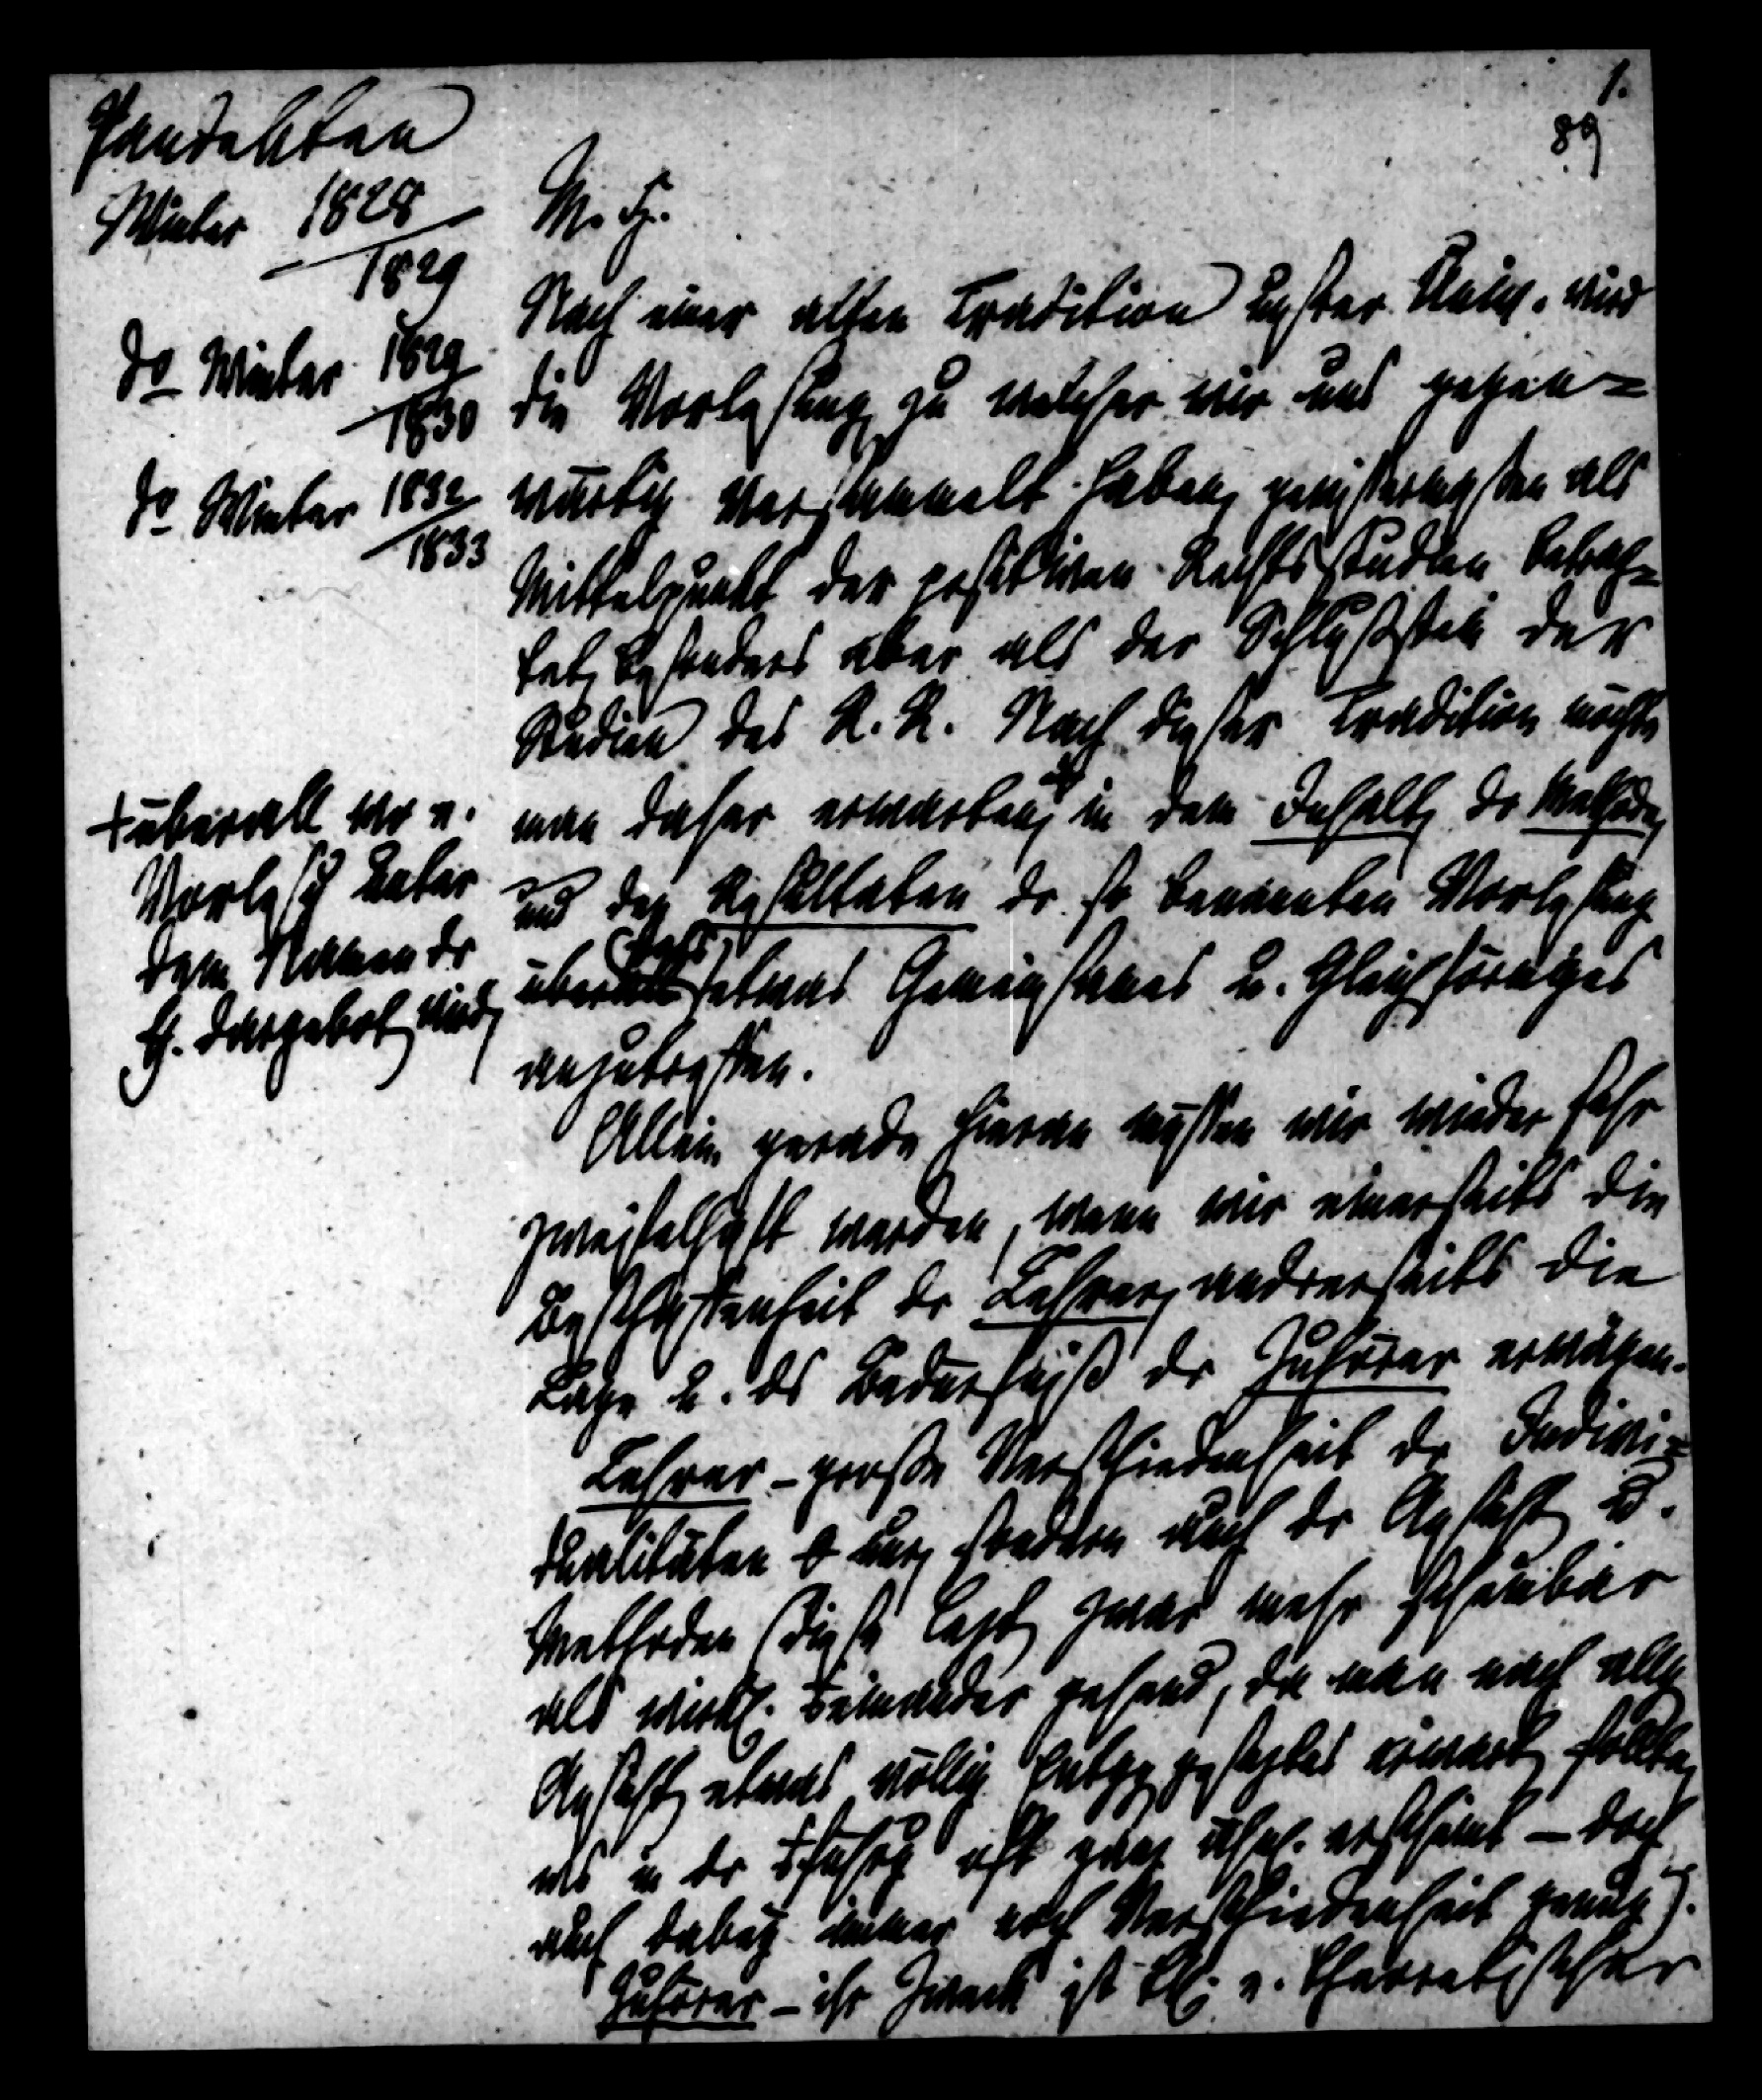 1.
89
Pandekten
Winter 1828/1829
do Winter 1829/1830
do Winter 1832/1833
M. H.
Nach einer alten Tradition unsrer Univ. wird
die Vorlesung zu welcher wir uns gegen=
wärtig versammelt haben, gewissermaßen als
Mittelpunkt der positiven Rechtsstudien betrach=
tet, besonders aber als der Schlußstein der
Studien des R. R. Nach dieser Tradition möchte
man daher erwarten, in dem Inhalt, der Methode,
und den Resultaten der so benannten Vorlesung
überall etwas Gemeinsames u. Gleichförmiges
anzutreffen.
+ überall wo e.
Vorlesg unter
dem Namen der
P. dargebot. wird,
Allein gerade hieran müssen wir wieder sehr
zweifelhaft werden, wenn wir einerseits die
Beschaffenheit der Lehrer, andrerseits die
Lage u. das Bedürfniß der Zuhörer erwägen.
Lehrer – große Verschiedenheit der Indivi=
dualitäten nur, sondern auch der Ansicht u.
Methoden (diese letzt. zwar mehr scheinbar
als wirkl. auseinander gehend, da man nach allen
Ansicht. etwas völlig Entgggesetztes erwart. sollte,
was in der Ausführg oft ganz ähnl. erscheint – doch
auch dabey immer noch Verschiedenheit genug).
Zuhörer – ihr Zweck ist theils e. theoretischer